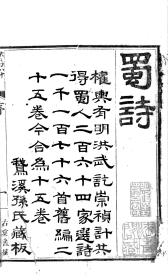 蜀詩
權輿有明洪武訖崇禎計共
得蜀人二百六十四家選詩
一千一百七十六首舊編二
十五卷今合為十五卷
鵞溪孫氏藏板